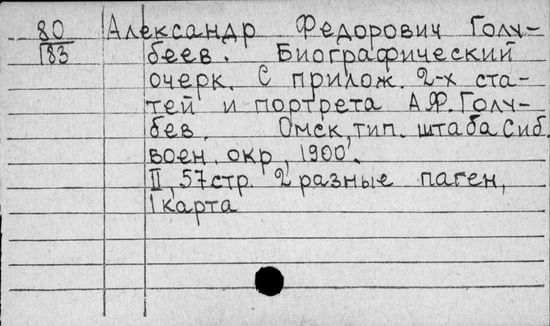 80 Александр Федорович Голу-
183 беев. Биографический
очерк. С прилож. 2-х ста-
тей и портрета А.Ф. Голу-
бев. Омск, тип. штаба Сиб.
воен. окр, 1900.
II, 57 стр. 2 разные паген,
1 карта